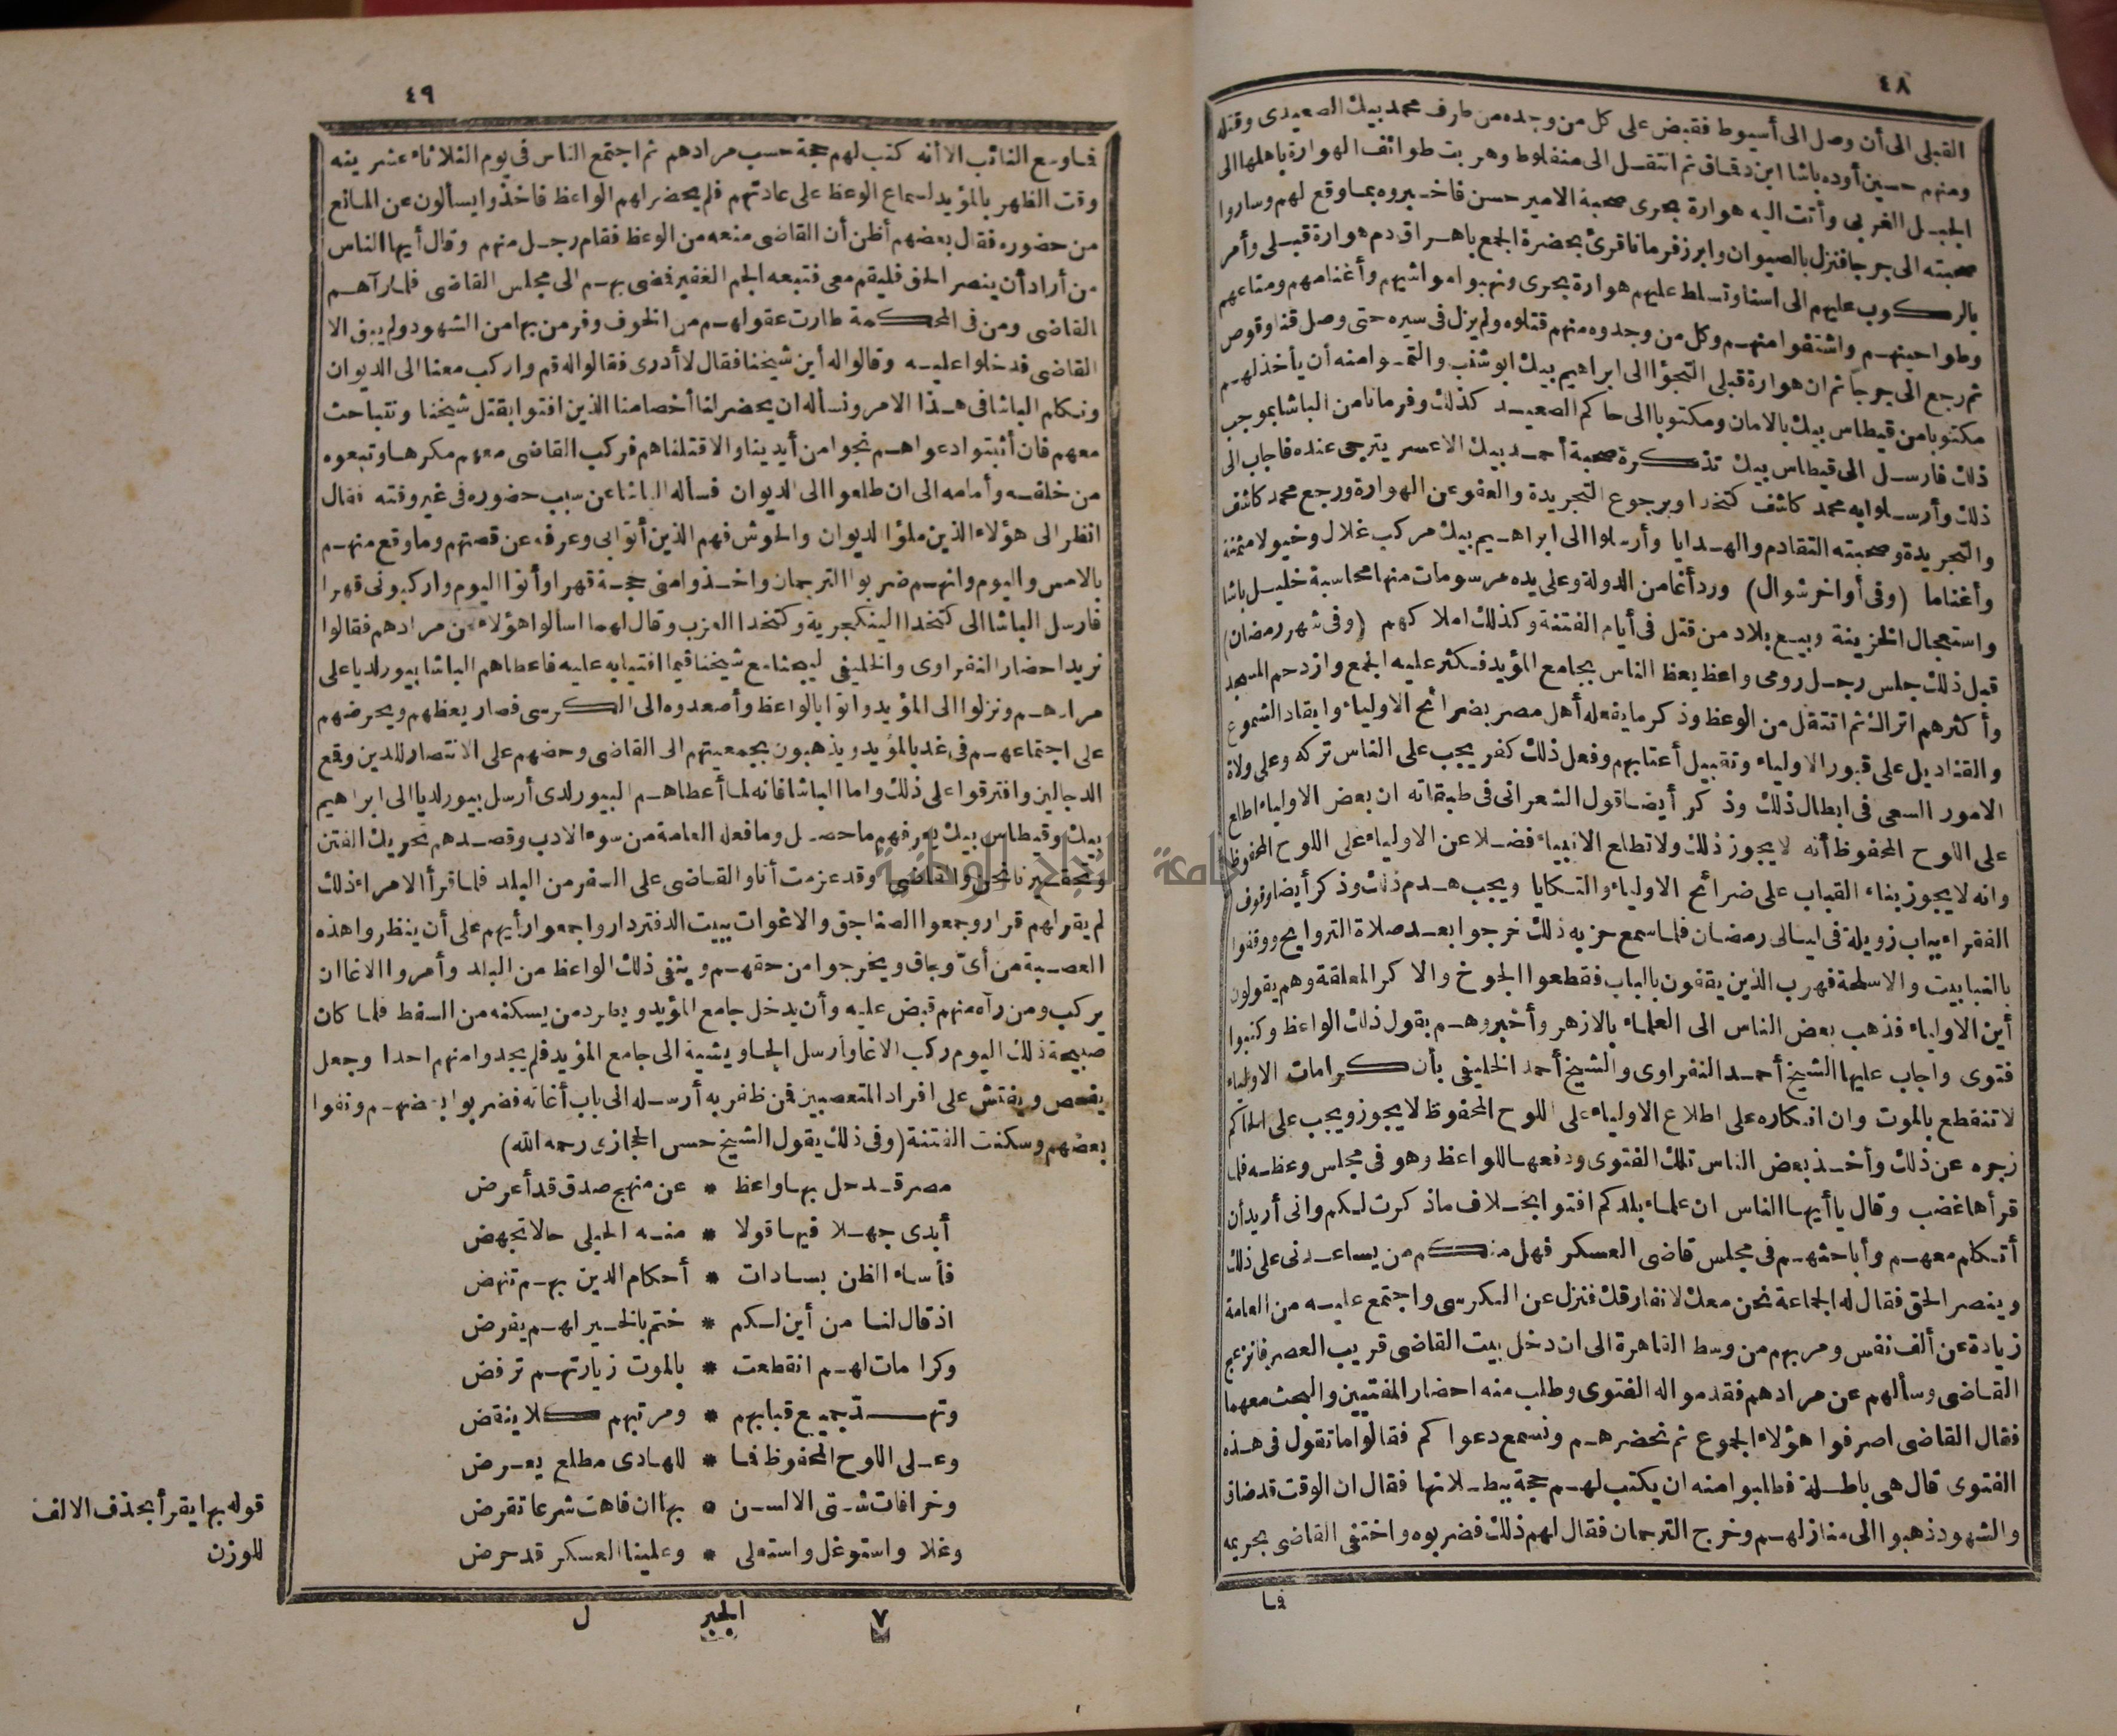 ٤٨
القبلى الى أن وصل الى أسيوط فقبض على كل من وجده من طرف محمد بيك الصعيدى وقتله
ومنهم حسين أوده باشا ابن دقماق ثم انتقل الى منفلوط وهربت طوائف الهوارة باهلها الى
الجبل الغربى وأتت اليه هوارة بحرى صحبة الامير حسن فاخبروه بما وقع لهم وساروا
صحبته الى جرجا فنزل بالصيوان وابرز فرمانا قرئ بحضرة الجمع باهراق دم هوارة قبلى وأمر
بالركوب عليهم الى اسنا وتسلط عليهم هوارة بحرى ونهبوا مواشيهم وأغنامهم ومتاعهم
وطواحينهم واشتفوا منهم وكل من وجدوه منهم قتلوه ولم يزل فى سيره حتى وصل قنا وقوص
ثم رجع الى جرجا ثم ان هوارة قبلى التجؤا الى ابراهيم بيك ابو شنب والتمسوا منه أن يأخذ لهم
مكتوبا من قيطاس بيك بالامان ومكتوبا الى حاكم الصعيد كذلك وفرمانا من الباشا بموجب
ذلك فارسل الى قيطاس بيك تذكرة صحبة أحمد بيك الاعسر يترجى عنده فاجاب الى
ذلك وأرسلوا به محمد كاشف كتخدا وبرجوع التجريدة والعفو عن الهوارة ورجع محمد كاشف
والتجريدة وصحبته التقادم والهدايا وأرسلوا الى ابراهيم بيك مركب غلال وخيولا مثمنة
وأغناما (وفى أواخر شوال) ورد أغا من الدولة وعلى يده مرسومات منها محاسبة خليل باشا
واستعجال الخزينة وبيع بلاد من قتل فى أيام الفتنة وكذلك املاكهم (وفى شهر رمضان)
قبل ذلك جلس رجل رومى واعظ يعظ الناس بجامع المؤيد فكثر عليه الجمع وازدحم المسجد
وأكثرهم اتراك ثم انتقل من الوعظ وذكر ما يفعله أهل مصر بضرائح الاولياء وايقاد الشموع
والقناديل على قبور الاولياء وتقبيل أعتابهم وفعل ذلك كفر يجب على الناس تركه وعلى ولاة
الامور السعى فى ابطال ذلك وذكر أيضا قول الشعرانى فى طبقاته ان بعض الاولياء اطلع
على اللوح المحفوظ أنه لا يجوز ذلك ولا تطلع الانبياء فضلا عن الاولياء على اللوح المحفوظ
وانه لا يجوز بناء القباب على ضرائح الاولياء والتكايا ويجب هدم ذلك وذكر أيضا وقوف
الفقراء بباب زويلة فى ليالى رمضان فلما سمع حزبه ذلك خرجوا بعد صلاة التراويح ووقفوا
بالنبابيت والاسلحة فهرب الذين يقفون بالباب فقطعوا الجوخ والاكر المعلقة وهم يقولون
أين الاولياء فذهب بعض الناس الى العلماء بالازهر وأخبروهم بقول ذلك الواعظ وكتبوا
فتوى واجاب عليها الشيخ أحمد النفراوى والشيخ أحمد الخليفى بأن كرامات الاولياء
لا تنقطع بالموت وان انكاره على اطلاع الاولياء على اللوح المحفوظ لا يجوز ويجب على الحاكم
زجره عن ذلك وأخذ بعض الناس تلك الفتوى ودفعها للواعظ وهو فى مجلس وعظه فلما
قرأها غضب وقال يا أيها الناس ان علماء بلدكم افتوا بخلاف ما ذكرت لكم وانى أريد أن
أتكلم معهم وأباحثهم فى مجلس قاضى العسكر فهل منكم من يساعدنى على ذلك
وينصر الحق فقال له الجماعة نحن معك لا نفارقك فنزل عن الكرسى واجتمع عليه من العامة
زيادة عن ألف نفس ومر بهم من وسط القاهرة الى ان دخل بيت القاضى قريب العصر فانزعج
القاضى وسألهم عن مرادهم فقدموا له الفتوى وطلب منه احضار المفتيين والبحث معهما
فقال القاضى اصرفوا هؤلاء الجموع ثم نحضرهم ونسمع دعواكم فقالوا ما تقول فى هذه
الفتوى قال هى باطلة فطلبوا منه ان يكتب لهم حجة ببطلانها فقال ان الوقت قد ضاق
والشهود ذهبوا الى منازلهم وخرج الترجمان فقال لهم ذلك فضربوه واختفى القاضى بحريمه
فما
٤٩
فما وسع النائب الا أنه كتب لهم حجة حسب مرادهم ثم اجتمع الناس فى يوم الثلاثاء عشرينه
وقت الظهر بالمؤيد لسماع الوعظ على عادتهم فلم يحضر لهم الواعظ فاخذوا يسألون عن المانع
من حضوره فقال بعضهم أظن أن القاضى منعه من الوعظ فقام رجل منهم وقال أيها الناس
من أراد أن ينصر الحق فليقم معى فتبعه الجم الغفير فمضى بهم الى مجلس القاضى فلما رآهم
القاضى ومن فى المحكمة طارت عقولهم من الخوف وفر من بها من الشهود ولم يبق الا
القاضى فدخلوا عليه وقالوا له أين شيخنا فقال لا أدرى فقالوا له قم واركب معنا الى الديوان
ونكلم الباشا فى هذا الامر ونسأله ان يحضر لنا أخصامنا الذين افتوا بقتل شيخنا ونتباحث
معهم فان أثبتوا دعواهم نجوا من أيدينا والا قتلناهم فركب القاضى معهم مكرها وتبعوه
من خلفه وأمامه الى ان طلعوا الى الديوان فسأله الباشا عن سبب حضوره فى غير وقته فقال
انظر الى هؤلاء الذين ملؤا الديوان والحوش فهم الذين أتوا بى وعرفه عن قصتهم وما وقع منهم
بالامس واليوم وانهم ضربوا الترجمان واخذوا منى حجة قهرا وأتوا اليوم واركبونى قهرا
فارسل الباشا الى كتخدا الينكجرية وكتخدا العزب وقال لهما اسألوا هؤلاء عن مرادهم فقالوا
نريد احضار النفراوى والخليفى ليبحثا مع شيخنا فيما افتيا به عليه فاعطاهم الباشا بيورلديا على
مرادهم ونزلوا الى المؤيد واتوا بالواعظ وأصعدوه الى الكرسى فصار يعظهم ويحرضهم
على اجتماعهم فى غد بالمؤيد ويذهبون بجمعيتهم الى القاضى وحضهم على الانتصار للدين وقمع
الدجالين وافترقوا على ذلك واما الباشا فانه لما أعطاهم البيورلدى أرسل بيورلديا الى ابراهيم
بيك وقيطاس بيك يعرفهم ما حصل وما فعله العامة من سوء الادب وقصدهم تحريك الفتن
وتحقيرنا نحن والقاضى وقد عزمت أنا والقاضى على السفر من البلد فلما قرأ الامراء ذلك
لم يقر لهم قرار وجمعوا الصناجق والاغوات ببيت الدفتردار واجمعوا رأيهم على أن ينظروا هذه
العصبة من أى وجاق ويخرجوا من حقهم وينفى ذلك الواعظ من البلد وأمروا الاغا ان
يركب ومن رآه منهم قبض عليه وأن يدخل جامع المؤيد ويطرد من يسكنه من السفط فلما كان
صبيحة ذلك اليوم ركب الاغا وأرسل الجاويشية الى جامع المؤيد فلم يجدوا منهم احدا وجعل
يفحص ويفتش على افراد المتعصبين فمن ظفر به أرسله الى باب أغاته فضربوا بعضهم ونفوا
بعضهم وسكنت الفتنة (وفى ذلك يقول الشيخ حسن الحجازى رحمه الله)
مصر قد حل بها واعظ * عن منهج صدق قد أعرض
أبدى جهلا فيها قولا * منه الحبلى حالا تجهض
فأساء الظن بسادات * أحكام الدين بهم تنهض
اذ قال لنا من أين لكم * ختم بالخير لهم يفرض
وكرامات لهم انقطعت * بالموت زيارتهم ترفض
وتهد جميع قبابهم * ومرتبهم كلا ينقض
وعلى اللوح المحفوظ فما * للهادى مطلع يعرض
وخرافات شتى الالسن * بها ان فاهت شرعا تقرض
وغلا واستوغل واستعلى * وعلينا العسكر قد حرض
قوله بها يقرأ بحذف الالف
للوزن
٧ الجبر ل
جامعة النجاح الوطنية